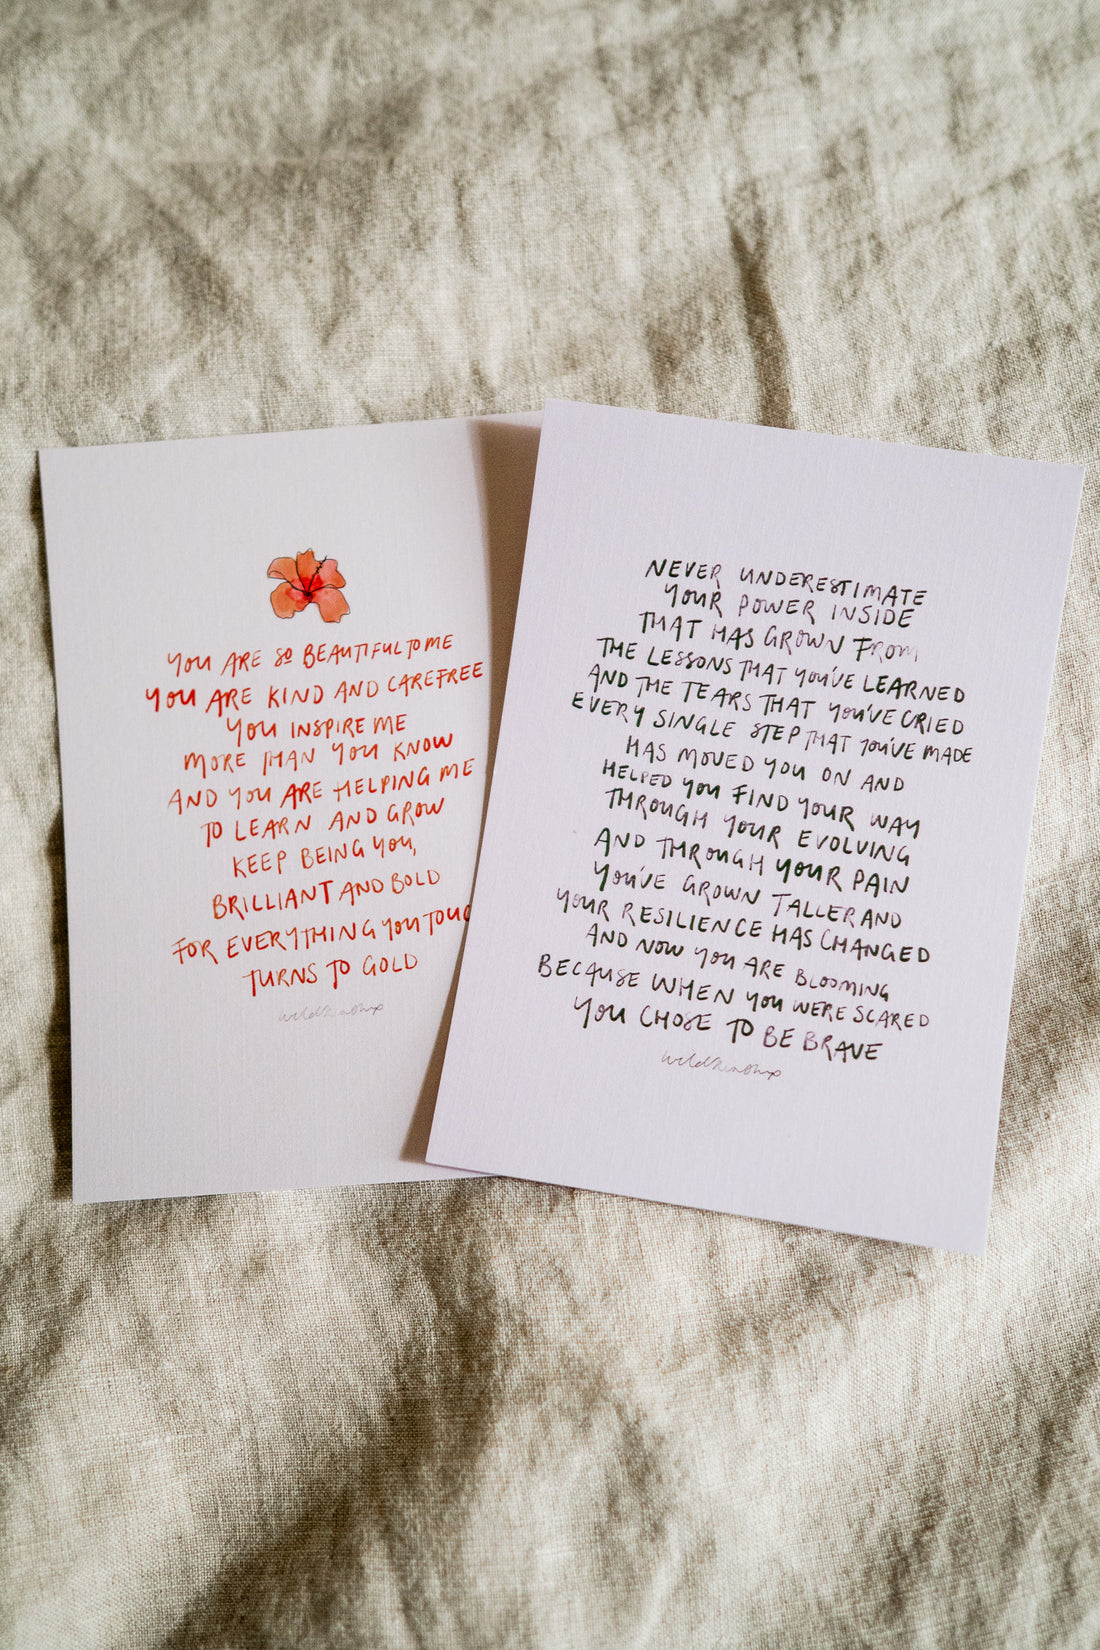 YOU ARE SO BEAUTIFUL TO ME
YOU ARE KIND AND CAREFREE
YOU INSPIRE ME
MORE THAN YOU KNOW
AND YOU ARE HELPING ME
TO LEARN AND GROW
KEEP BEING YOU,
BRILLIANT AND BOLD
FOR EVERYTHING YOU TOUC
TURNS TO GOLD
NEVER UNDERESTIMATE
YOUR POWER INSIDE
THAT HAS GROWN FROM
THE LESSONS THAT YOU'VE LEARNED
AND THE TEARS THAT YOU'VE CRIED
EVERY SINGLE STEP THAT YOU'VE MADE
HAS MOVED YOU ON AND
HELPED YOU FIND YOUR WAY
THROUGH YOUR EVOLVING
AND THROUGH YOUR PAIN
YOU'VE GROWN TALLER AND
YOUR RESILIENCE HAS CHANGED
AND NOW YOU ARE BLOOMING
BECAUSE WHEN YOU WERE SCARED
YOU CHOSE TO BE BRAVE